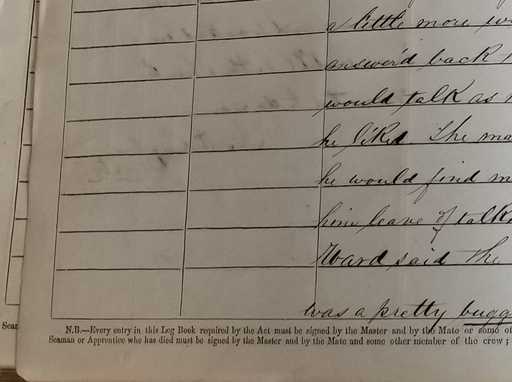 a little more
answer'd back
would talk as
he liked. The
he would find
him leave of
Ward said the
was a pretty
N.B.—Every entry in this Log Book required by the Act must be signed by the Master and by the Mate or some
Seaman or Apprentice who has died must be signed by the Master and by the Mate and some other member of the crow ;